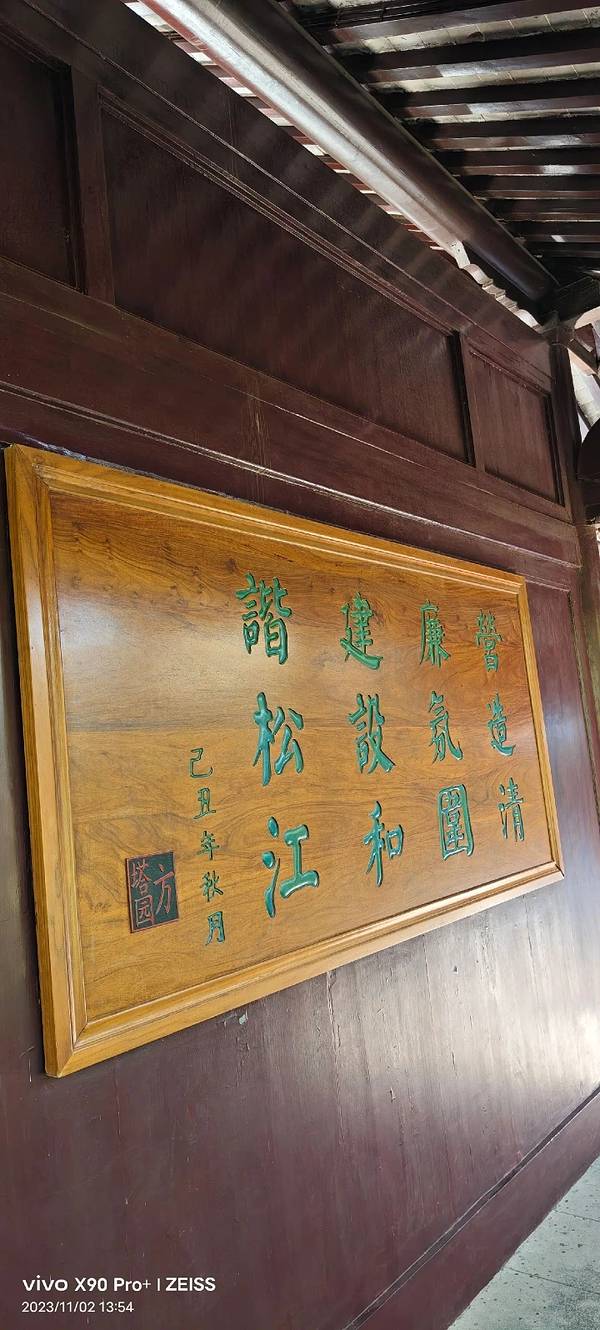 營造清
廉氛圍
建設和
諧松江
己丑年秋月
方
塔园
vivo X90 Pro+ | ZEISS
2023/11/02 13:54